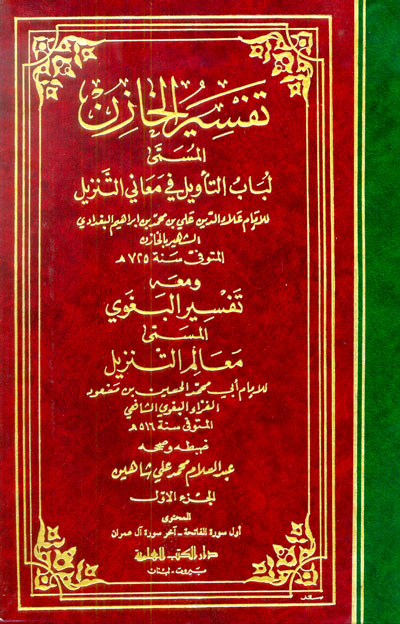 تفسير الخازن
المسمى
لباب التأويل في معاني التنزيل
للإمام علاء الدين علي بن محمد بن ابراهيم البغدادي
الشهير بالخازن
المتوفى سنة ٧٢٥ هـ
ومعه
تفسير البغوي
المسمى
معالم التنزيل
للإمام أبي محمد الحسين بن مسعود
الفراء البغوي الشافعي
المتوفى سنة ٥١٦ هـ
ضبطه وصححه
عبد السلام محمد علي شاهين
الجزء الأول
المحتوى
أول سورة الفاتحة - آخر سورة آل عمران
دار الكتب العلمية
بيروت - لبنان
سعد